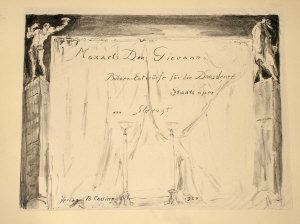 Mozarts Don Giovanni
Bühnenentwürfe für die Dresdener
Staatsoper
Slevogt
Verlag B. Cassirer